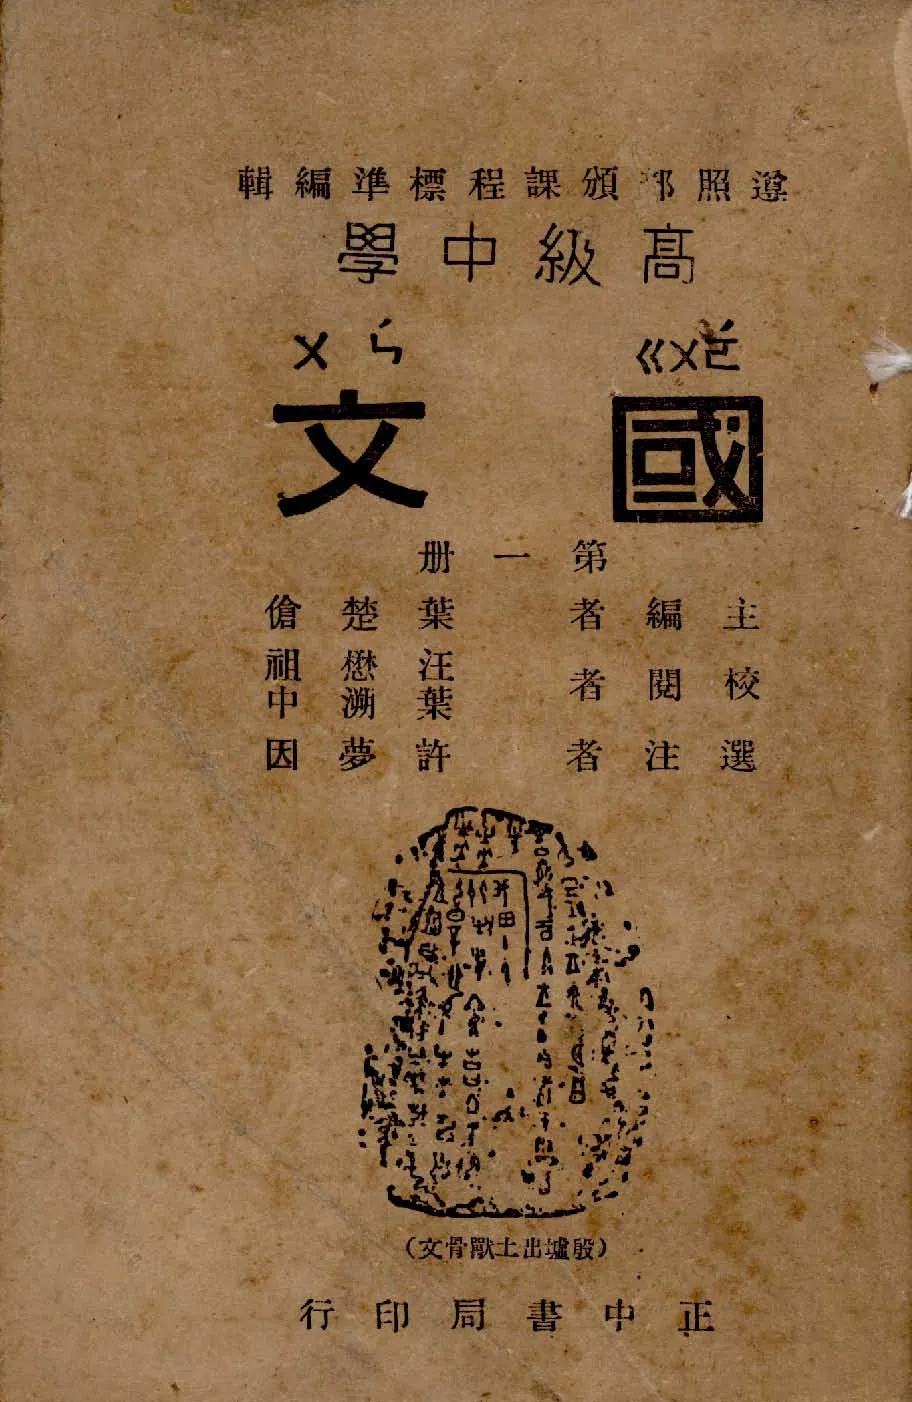 遵照部頒課程標準編輯
高級中學
ㄍㄨㄛˊ ㄨㄣˊ
國文
第一册
主編者 葉楚傖
校閱者 汪懋祖
葉溯中
選注者 許夢因
(殷墟出土獸骨文)
正中書局印行